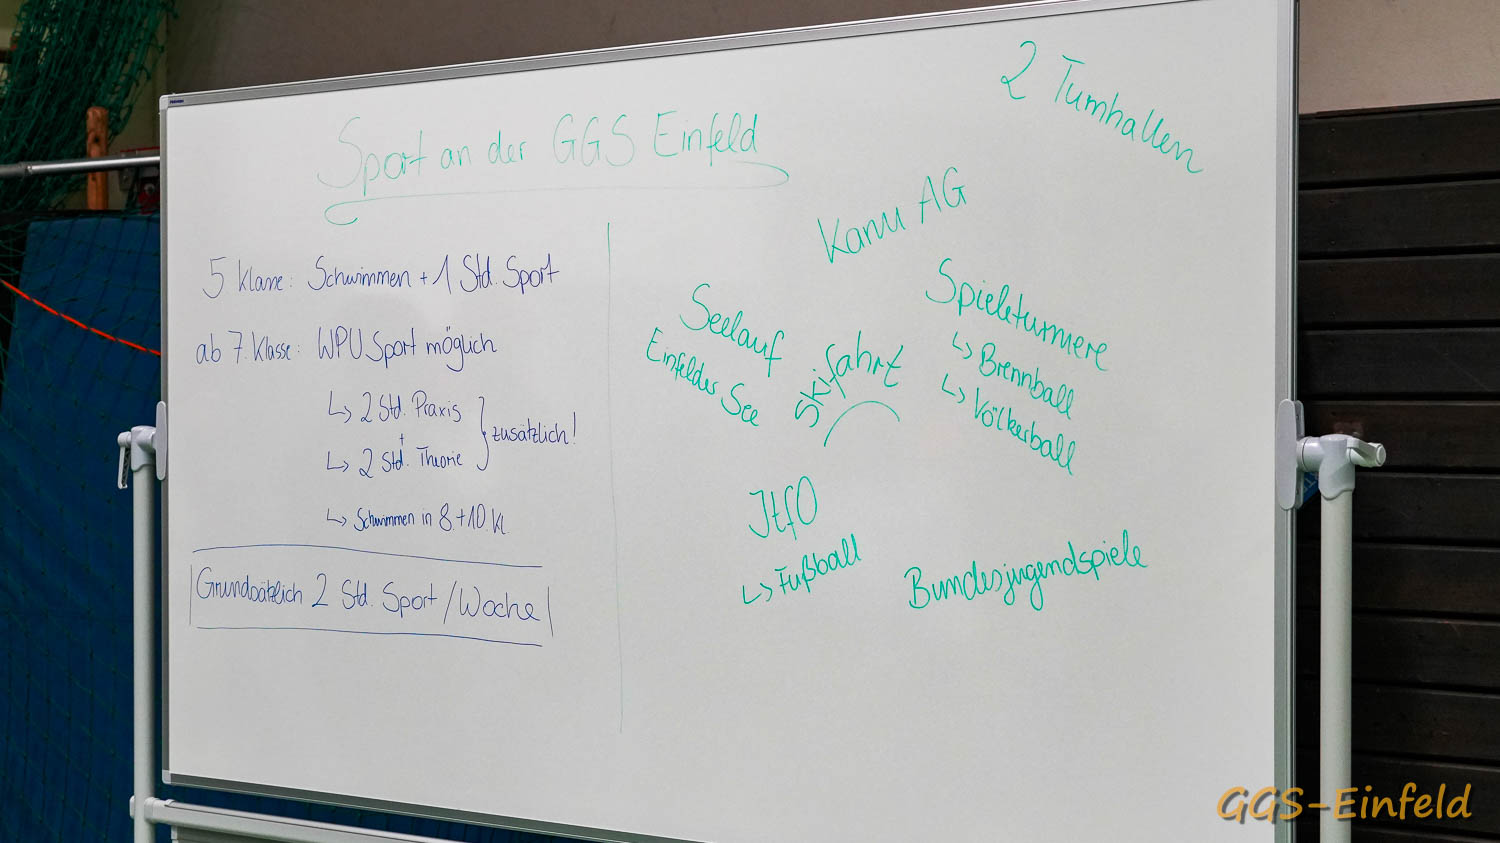 Sport an der GGS Einfeld
5 Klasse: Schwimmen + 1 Std. Sport
ab 7. Klasse: WPU Sport möglich
↳ 2 Std. Praxis
+
↳ 2 Std. Theorie
} zusätzlich!
↳ Schwimmen in 8.+10. Kl.
Grundsätzlich 2 Std. Sport / Woche
2 Turnhallen
Kanu AG
Seelauf
Einfelder See
Skifahrt
Spieleturniere
↳ Brennball
↳ Völkerball
JtfO
↳ Fußball
Bundesjugendspiele
GGS-Einfeld